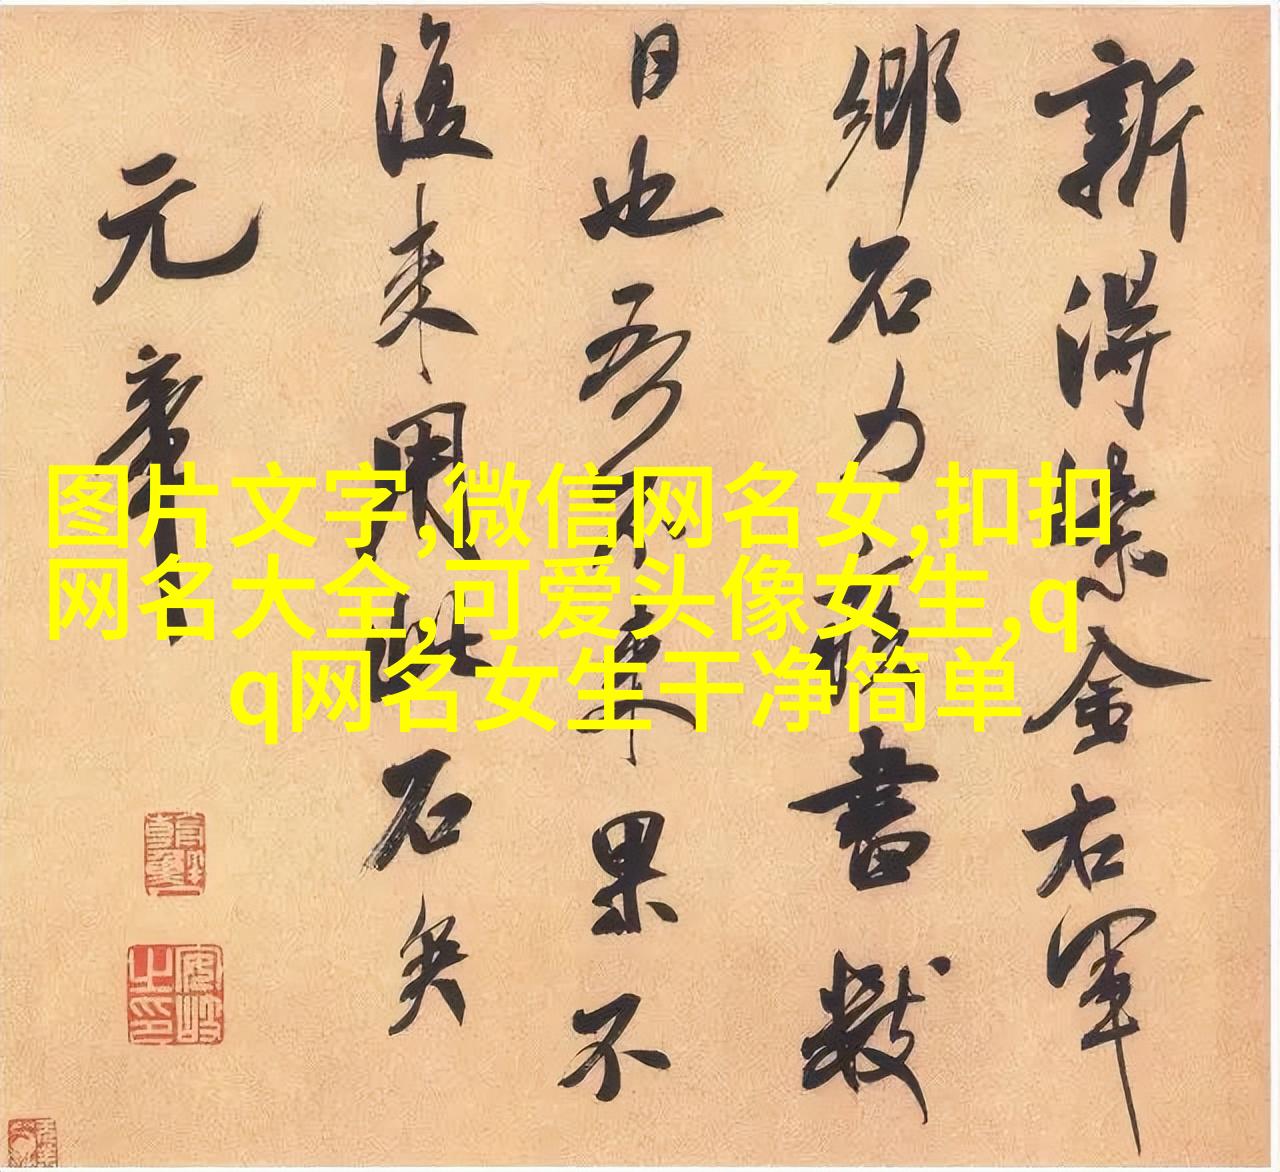 新得紫金右軍
鄉石力疾書數
日也吾不來果不
復來用此石矣
元章
图片文字,微信网名女,扣扣
网名大全,可爱头像女生,q
q网名女生干净简单